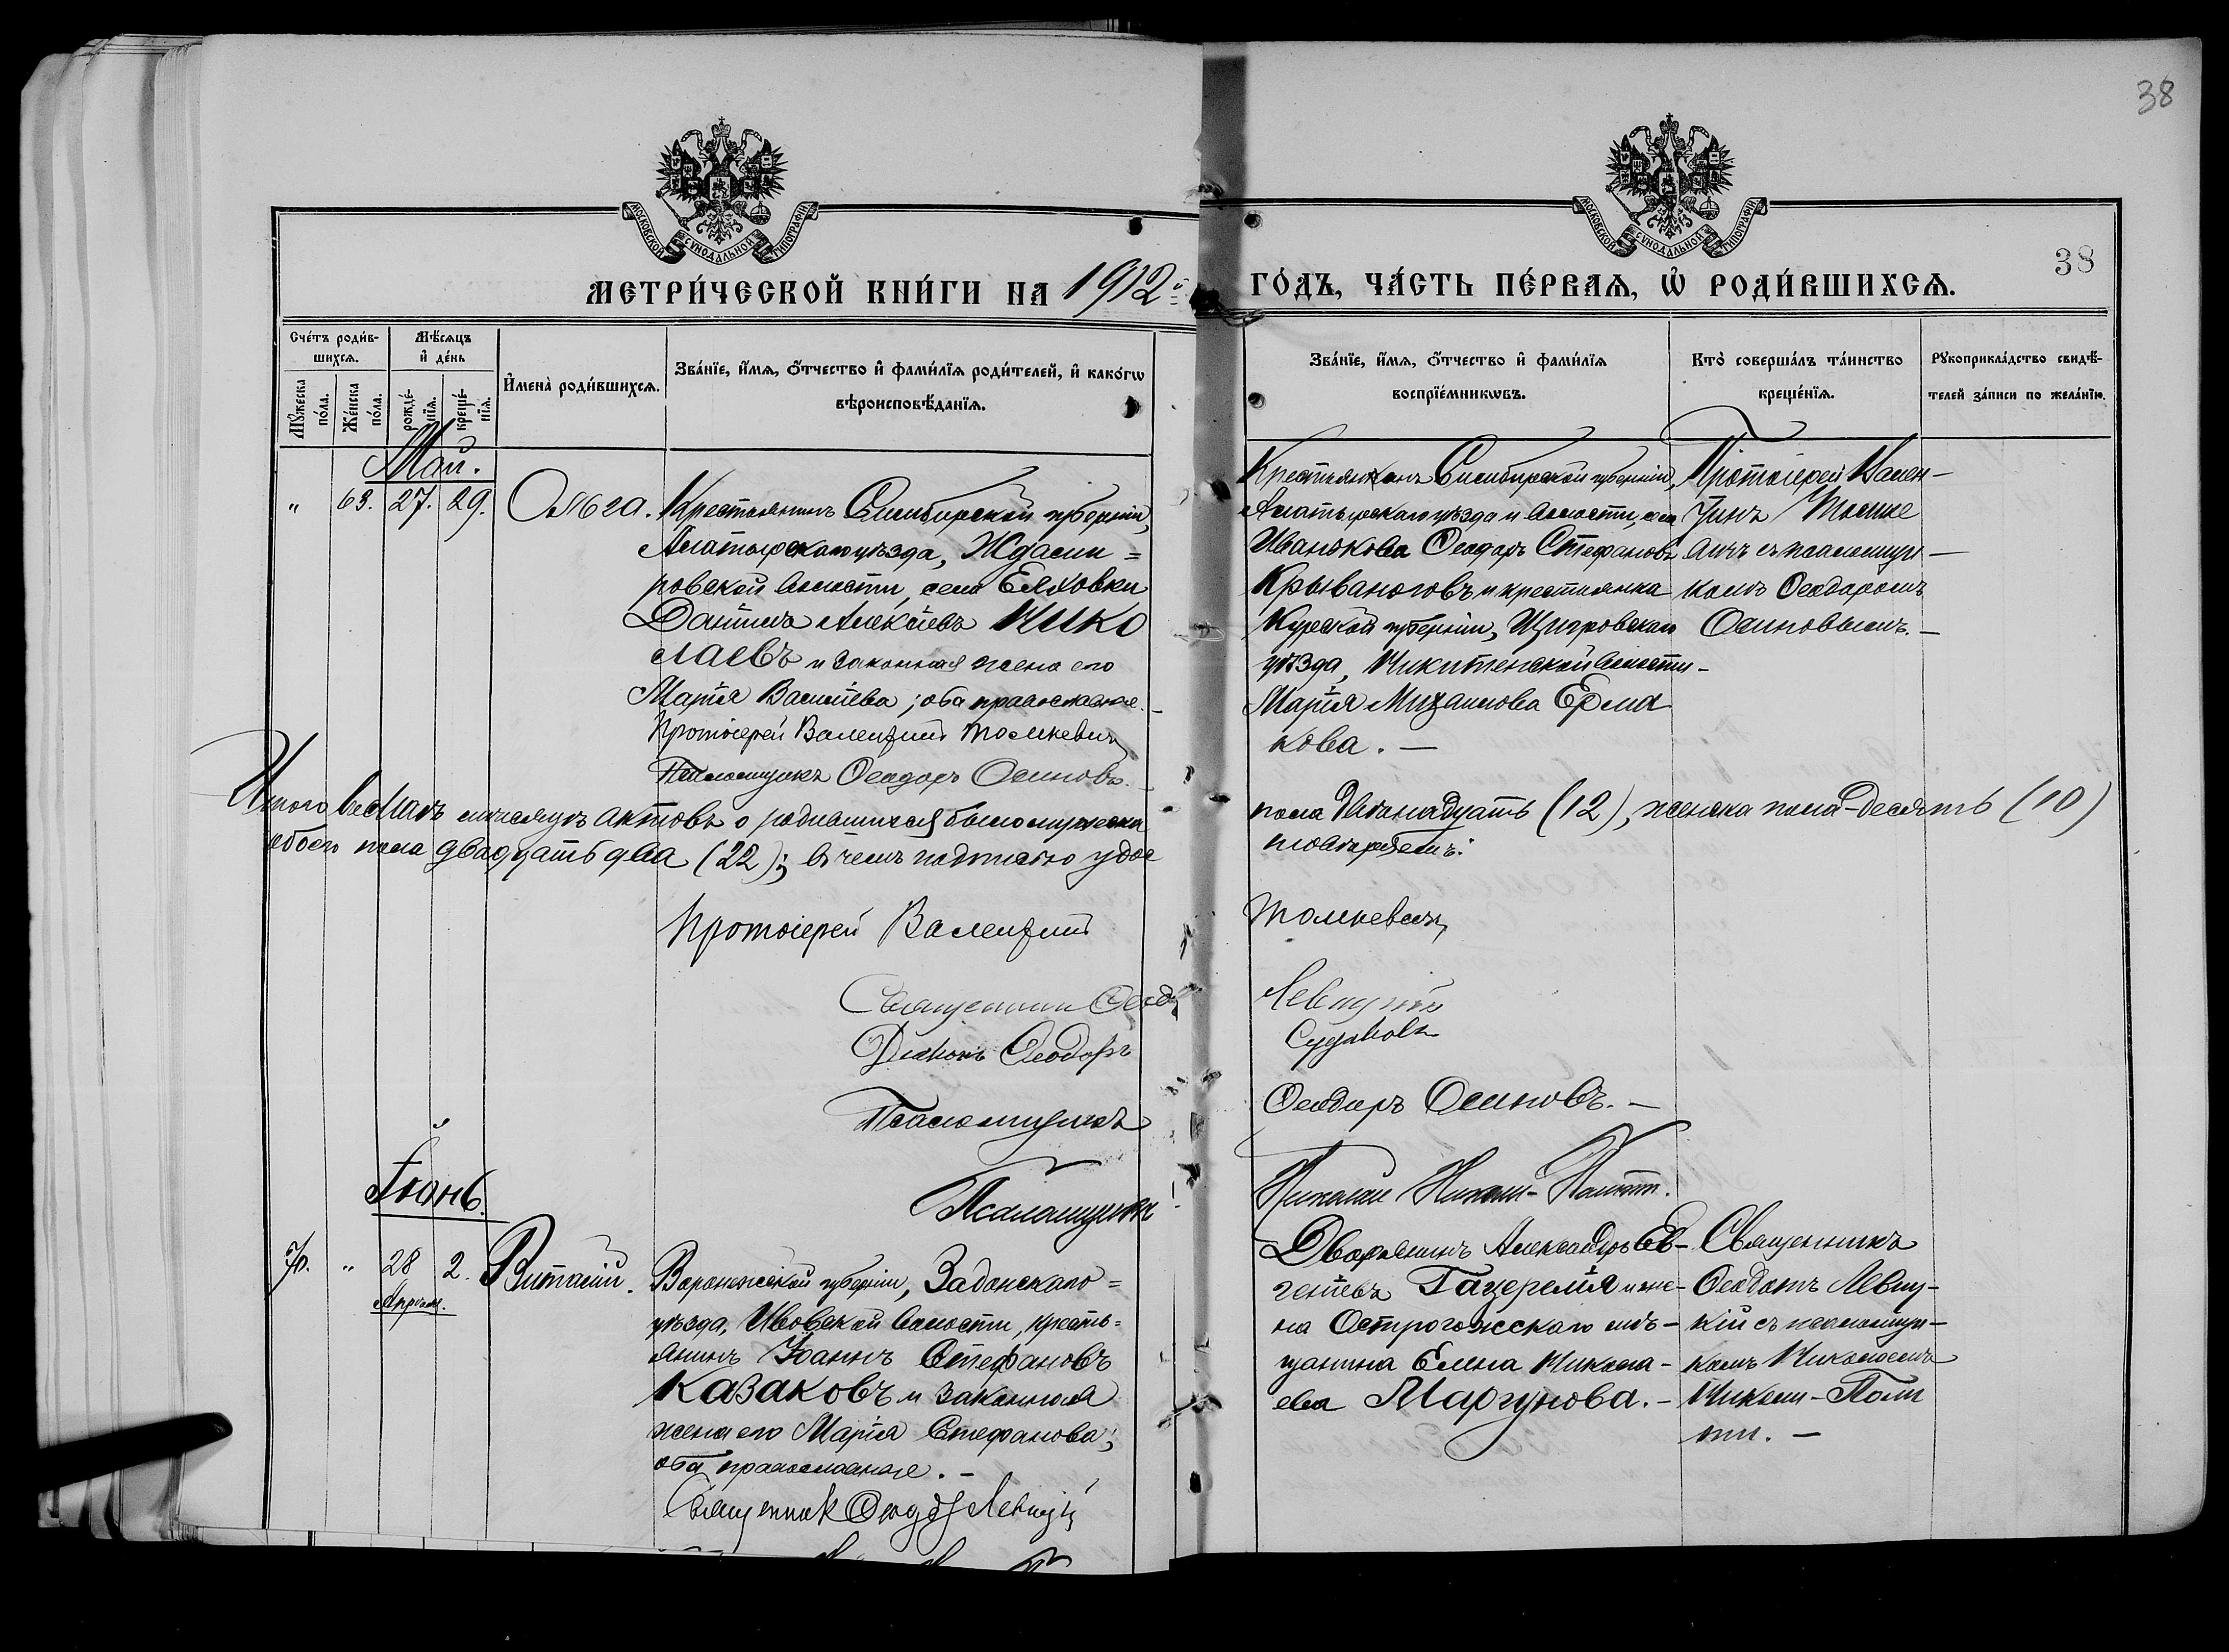 38
МОСКОВСКОЙ СѴНОДАЛЬНОЙ ТИПОГРАФІИ
МОСКОВСКОЙ СѴНОДАЛЬНОЙ ТИПОГРАФІИ
38
МЕТРИ́ЧЕСКОЙ КНИ́ГИ НА 1912 й
ГО́ДЪ, ЧА́СТЬ ПЕ́РВАЯ, Ѡ РОДИ́ВШИХСЯ.
Сче́тъ роди́в-
шихся.
Мꙋ́жеска по́ла.
Же́нска по́ла.
Мѣ́сяцъ
и де́нь
рожде́-
нія.
креще́-
нія.
И́мена̀ роди́вшихся.
Зва́нїе, и́мя, о́тчество и фами́лїя роди́телей, и како́гѡ
вѣроисповѣ́данїя.
Зва́нїе, и́мя, о́тчество и фами́лїя
воспрїе́мникѡвъ.
Кто̀ соверша́лъ та́инство
креще́нїя.
Рꙋкоприкла́дство свидѣ́-
телей за́писи по жела́нїю.
Май.
" 63. 27. 29. Ольга.
Крестьянинъ Симбирской губерніи,
Алатырскаго уѣзда, Ждами=
ровской волости, села Елховки
Даніилъ Алексѣевъ Нико
лаевъ и законная жена его
Марія Васильева; оба православные.
Протоіерей Валентинъ Томкевичъ
Псаломщикъ Ѳеодоръ Осиповъ.
Крестьянинъ Симбирской губерніи,
Алатырскаго уѣзда и волости, села
Иванькова Ѳеодоръ Стефановъ
Крывоноговъ и крестьянка
Курской губерніи, Щигровскаго
уѣзда, Никитенской волости
Марія Михаилова Ерма
кова. —
Протоіерей Вален-
тинъ Томке
вичъ съ псаломщи-
комъ Ѳеодоромъ
Осиповымъ. —
Итого въ Маѣ мѣсяцѣ актовъ о родившихся было мужеска
пола двѣнадцать (12), женска пола – десять (10)
обоего пола двадцать два (22); въ чемъ подписью удос
товѣряемъ:
Протоіерей Валентинъ
Томкевичъ
Священникъ Ѳеод
Левицкій
Діаконъ Ѳеодоръ
Псаломщикъ
Ѳеодоръ Осиповъ. —
Псаломщикъ
Николай Никан-
Іюнь.
70. " 28 2. Виталій.
Апрѣля.
Воронежской губерніи, Задонскаго=
уѣзда, волости, кресть=
янинъ Іоаннъ Стефановъ
Казаковъ и законная
жена его Марія Стефанова;
оба православные. —
Священникъ Левицкій
Дворянинъ Александръ Ев-
геніевъ Гацерелія и же-
на Острогожскаго мѣ-
щанина Елена Никола-
ева Маргунова. —
Священникъ
Левиц-
кій съ псаломщи-
комъ Николаемъ